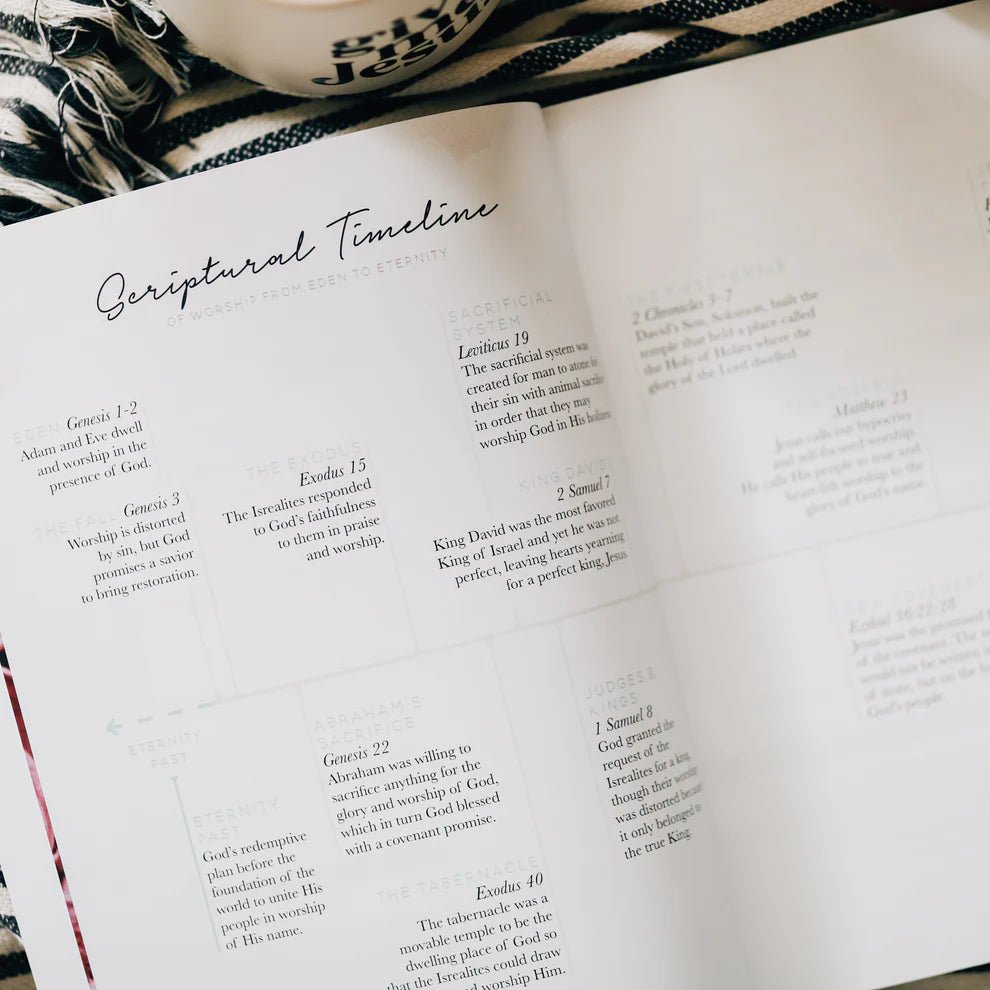 give
me
Jesus
Scriptural Timeline
OF WORSHIP FROM EDEN TO ETERNITY
EDEN Genesis 1-2
Adam and Eve dwell
and worship in the
presence of God.
THE FALL Genesis 3
Worship is distorted
by sin, but God
promises a savior
to bring restoration.
THE EXODUS
Exodus 15
The Isrealites responded
to God's faithfulness
to them in praise
and worship.
SACRIFICIAL
SYSTEM
Leviticus 19
The sacrificial system was
created for man to atone for
their sin with animal sacrifice
in order that they may
worship God in His holiness.
KING DAVID
2 Samuel 7
King David was the most favored
King of Israel and yet he was not
perfect, leaving hearts yearning
for a perfect king, Jesus.
ETERNITY
PAST
ETERNITY
PAST
God's redemptive
plan before the
foundation of the
world to unite His
people in worship
of His name.
ABRAHAM'S
SACRIFICE
Genesis 22
Abraham was willing to
sacrifice anything for the
glory and worship of God,
which in turn God blessed
with a covenant promise.
THE TABERNACLE
Exodus 40
The tabernacle was a
movable temple to be the
dwelling place of God so
that the Isrealites could draw
worship Him.
JUDGES &
KINGS
1 Samuel 8
God granted the
request of the
Isrealites for a king,
though their worship
was distorted because
it only belonged to
the true King.
THE FIRST TEMPLE
2 Chronicles 3-7
David's Son, Solomon, built the
temple that held a place called
the Holy of Holies where the
glory of the Lord dwelled.
Matthew 23
Jesus calls out hypocrisy
and self-focused worship.
He calls His people to true and
heartfelt worship to the
glory of God's name.
NEW COVENANT
Ezekiel 36:22-28
Jesus was the promised
of the covenant. The
would not be written
of stone, but on the
God's people.